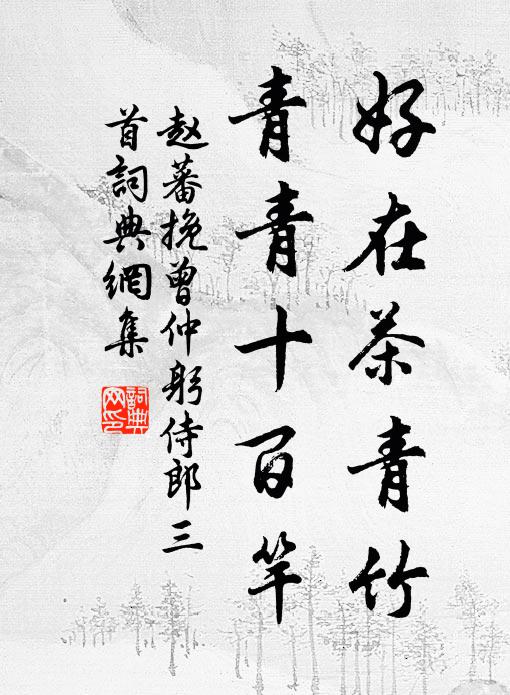 好在茶青竹
青青十百竿
赵蕃挽曾仲躬侍郎三
首詞典網集
詞典
网印